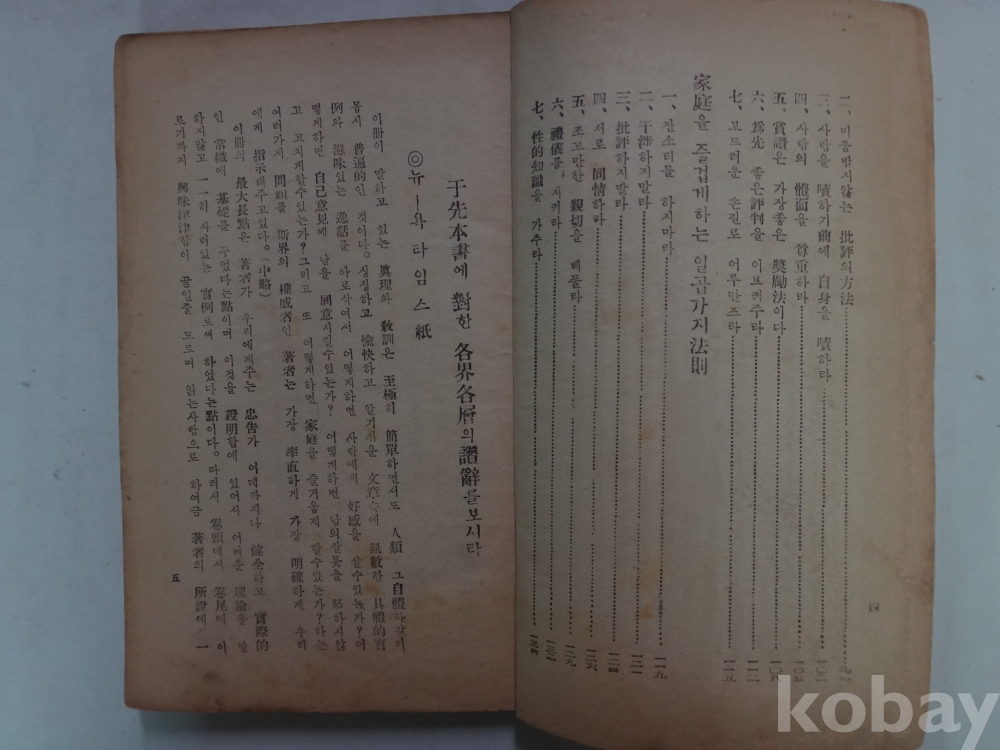 二、미움받지않는 批評의方法
三、사람을 嘖하기前에 自身을 嘖하라
四、사람의 體面을 尊重하라
五、賞讚은 가장좋은 奬勵法이다
六、爲先 좋은評判을 이르켜주라
七、보드러운 손길로 어루만즈라
家庭을 즐겁게하는 일곱가지法則
一、잔소리를 하지마라
二、干涉하지말라
三、批評하지말라
四、서로 同情하라
五、조고만한 親切을 베플라
六、禮儀를 지키라
七、性的知識을 가추라
四
于先本書에 對한 各界各層의讚辭를보시라
◎뉴—욕 타임스紙
이冊이 말하고 있는 眞理와 敎訓은 至極히 簡單하면서도 人類 그自體와같이
몹시 普遍的인 것이다。싱싱하고 愉快하고 알기쉬운 文章속에 無數한 具體的實
例와 滋味있는 逸話를 아로삭여서 어떻지하면 사람에게 好感을 살수있는가?어
떻게하면 自己意見에 남을 同意시킬수있는가? 어떻게하면 남의잘못을 怒하시않
고 고치게할수있는가?그리고 또 어떻게하면 家庭을 즐거웁게 할수있는가?하는
여러가지 問題를 斯界의 權威者인 著者는 가장 率直하게 가장 明確하게 우리
에게 指示해주고있다。(中略)
이冊의 最大長點은 著者가 우리에게주는 忠告가 어데까지나 健全하고 實際的
인 常識에 基礎를 두었다는點이며 이것을 證明함에 있어서 어려운 理論을 말
하지않고 一一히 사러있는 實例로써 하였다는點이다。따러서 卷頭에서 卷尾에 이
르기까지 興味津津함이 끝일줄 모르며 읽는사람으로 하여금 著者의 所說에 一
五
kobay